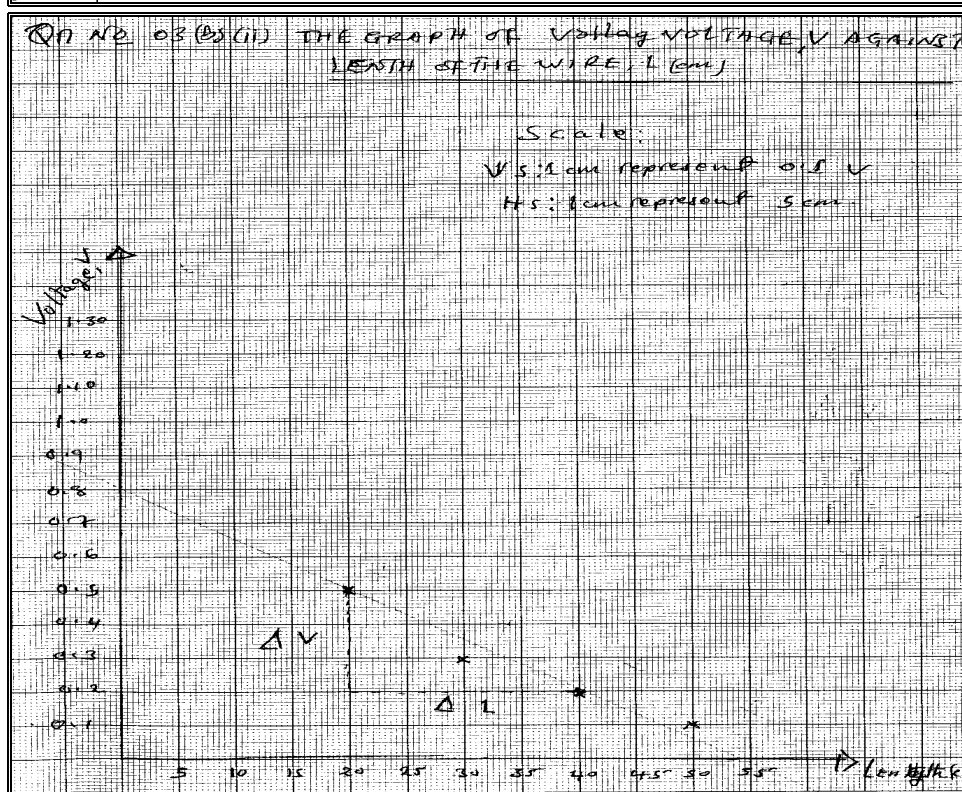 Qn NO 03 (b) (ii) THE GRAPH OF Voltag VOLTAGE, V AGAINST
LENTH OF THE WIRE, L (cm)
Scale:
Vs: 1 cm represent 0.1 V
Hs: 1 cm represent 5 cm.
Voltage, V
1.30
1.20
1.10
1.0
0.9
0.8
0.7
0.6
0.5
0.4
Δ V
0.3
0.2
Δ L
0.1
5 10 15 20 25 30 35 40 45 50 55
Length